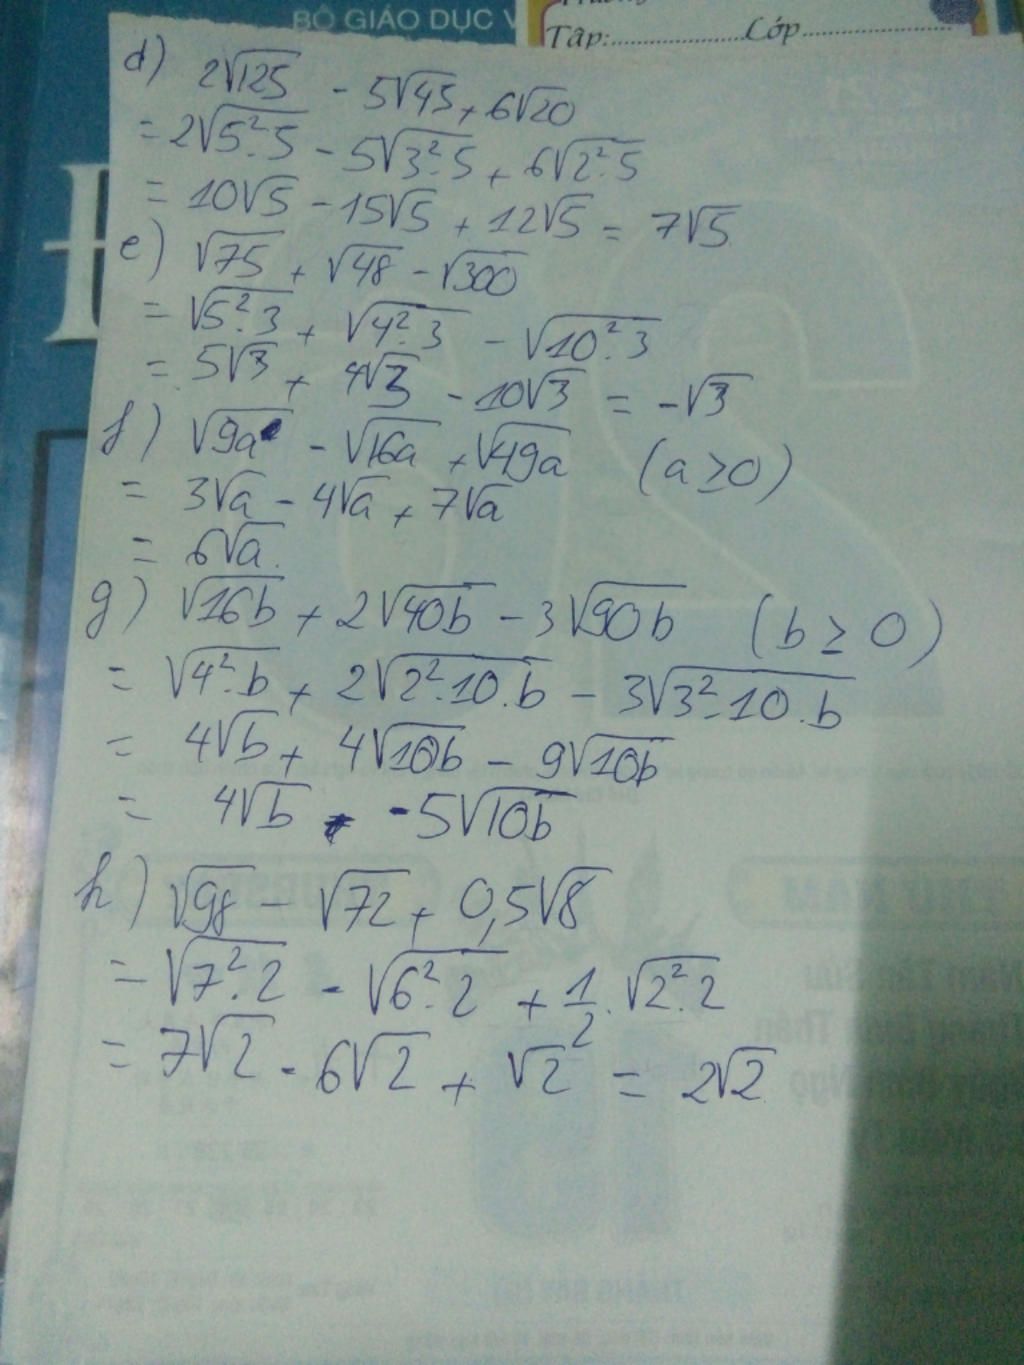 BỘ GIÁO DỤC V
Tập:..........................Lớp..........................
d) 2√125 - 5√45 + 6√20
= 2√5².5 - 5√3².5 + 6√2².5
= 10√5 - 15√5 + 12√5 = 7√5
e) √75 + √48 - √300
= √5².3 + √4².3 - √10².3
= 5√3 + 4√3 - 10√3 = -√3
f) √9a - √16a + √49a (a ≥ 0)
= 3√a - 4√a + 7√a
= 6√a.
g) √16b + 2√40b - 3√90b (b ≥ 0)
= √4².b + 2√2².10.b - 3√3².10.b
= 4√b + 4√10b - 9√10b
= 4√b - 5√10b
h) √98 - √72 + 0,5√8
= √7².2 - √6².2 + 1/2.√2².2
= 7√2 - 6√2 + √2 = 2√2